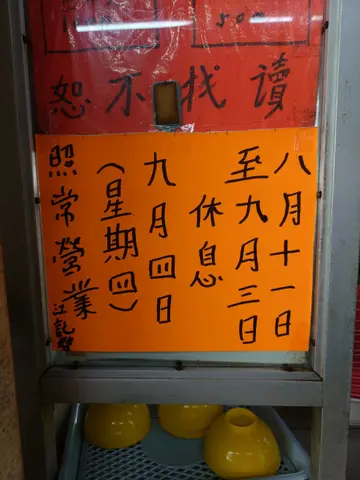 500
恕不找讀
八月十一日
至九月三日
休息
九月四日
（星期四）
照常營業
江記